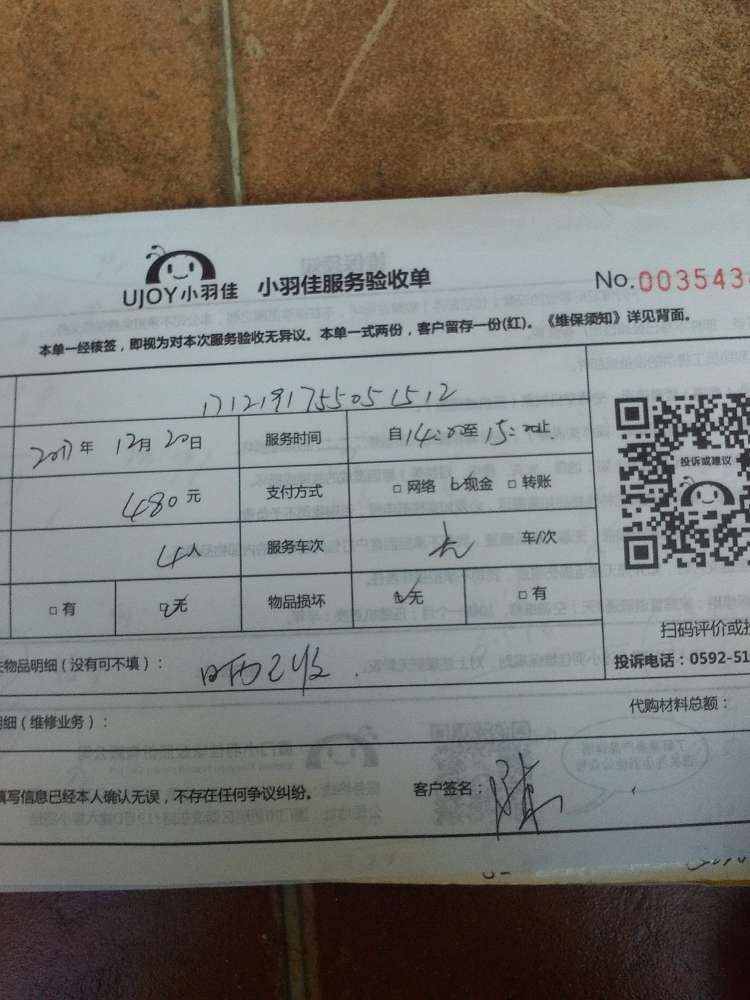 UJOY小羽佳 小羽佳服务验收单 No.003543
本单一经核签，即视为对本次服务验收无异议。本单一式两份，客户留存一份(红)。《维保须知》详见背面。
17121917555051512
2017年 12月 20日 服务时间 自14:00至15:00止
480元 支付方式 网络 现金 转账
4人 服务车次 车/次
有 无 物品损坏 无 有
投诉或建议
扫码评价或
物品明细（没有可不填）：
投诉电话：0592-51
细（维修业务）： 代购材料总额：
填写信息已经本人确认无误，不存在任何争议纠纷。 客户签名：